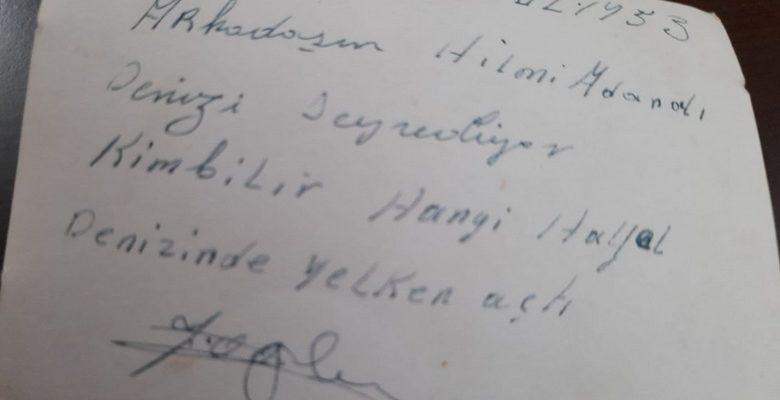 1953
Arkadaşım Hilmi Adanalı
Denizi Seyrediyor
Kimbilir Hangi Hayal
Denizinde Yelken açtı